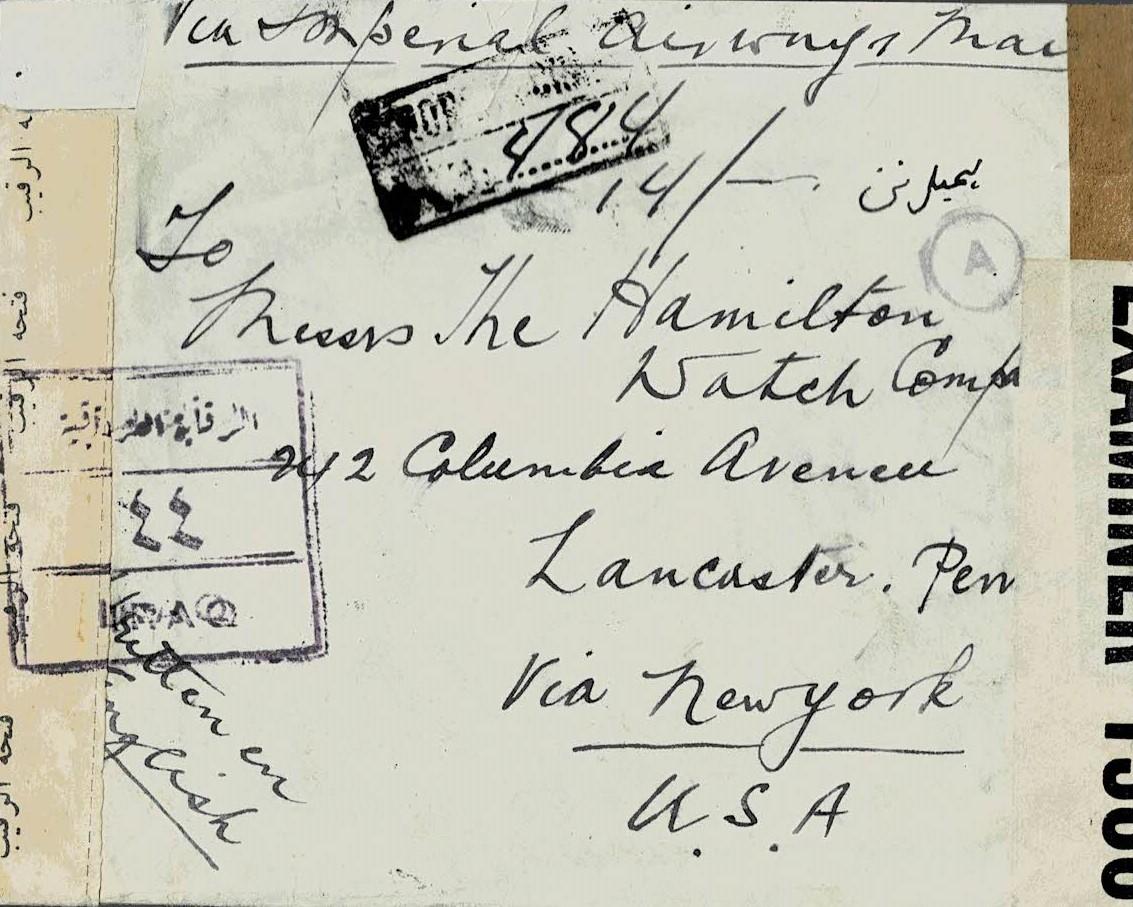 Via Imperial Airways Mai
484
14/-
To
A
Messrs The Hamilton
Watch Compa
242 Columbia Aveneu
Lancaster. Pen
Via Newyork
U.S.A
الرقابة العراقية
٤٤
IRAQ
Written in
English
فتحه الرقيب
فتحه الرقيب
فتحه الرقيب
فتحه الرقيب
EXAMINER